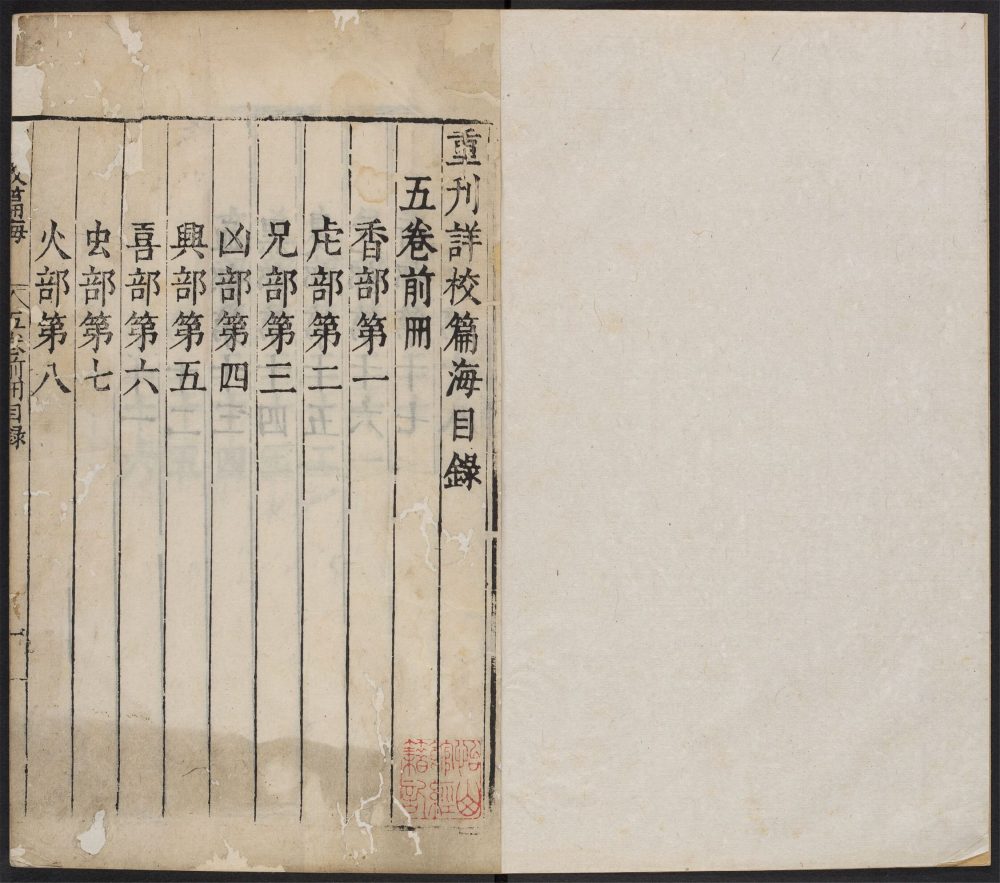 重刊詳校篇海目錄
五卷前冊
香部第一
虍部第二
兄部第三
凶部第四
興部第五
喜部第六
虫部第七
火部第八
篇海
五卷前冊目録
一
山
經
籍記